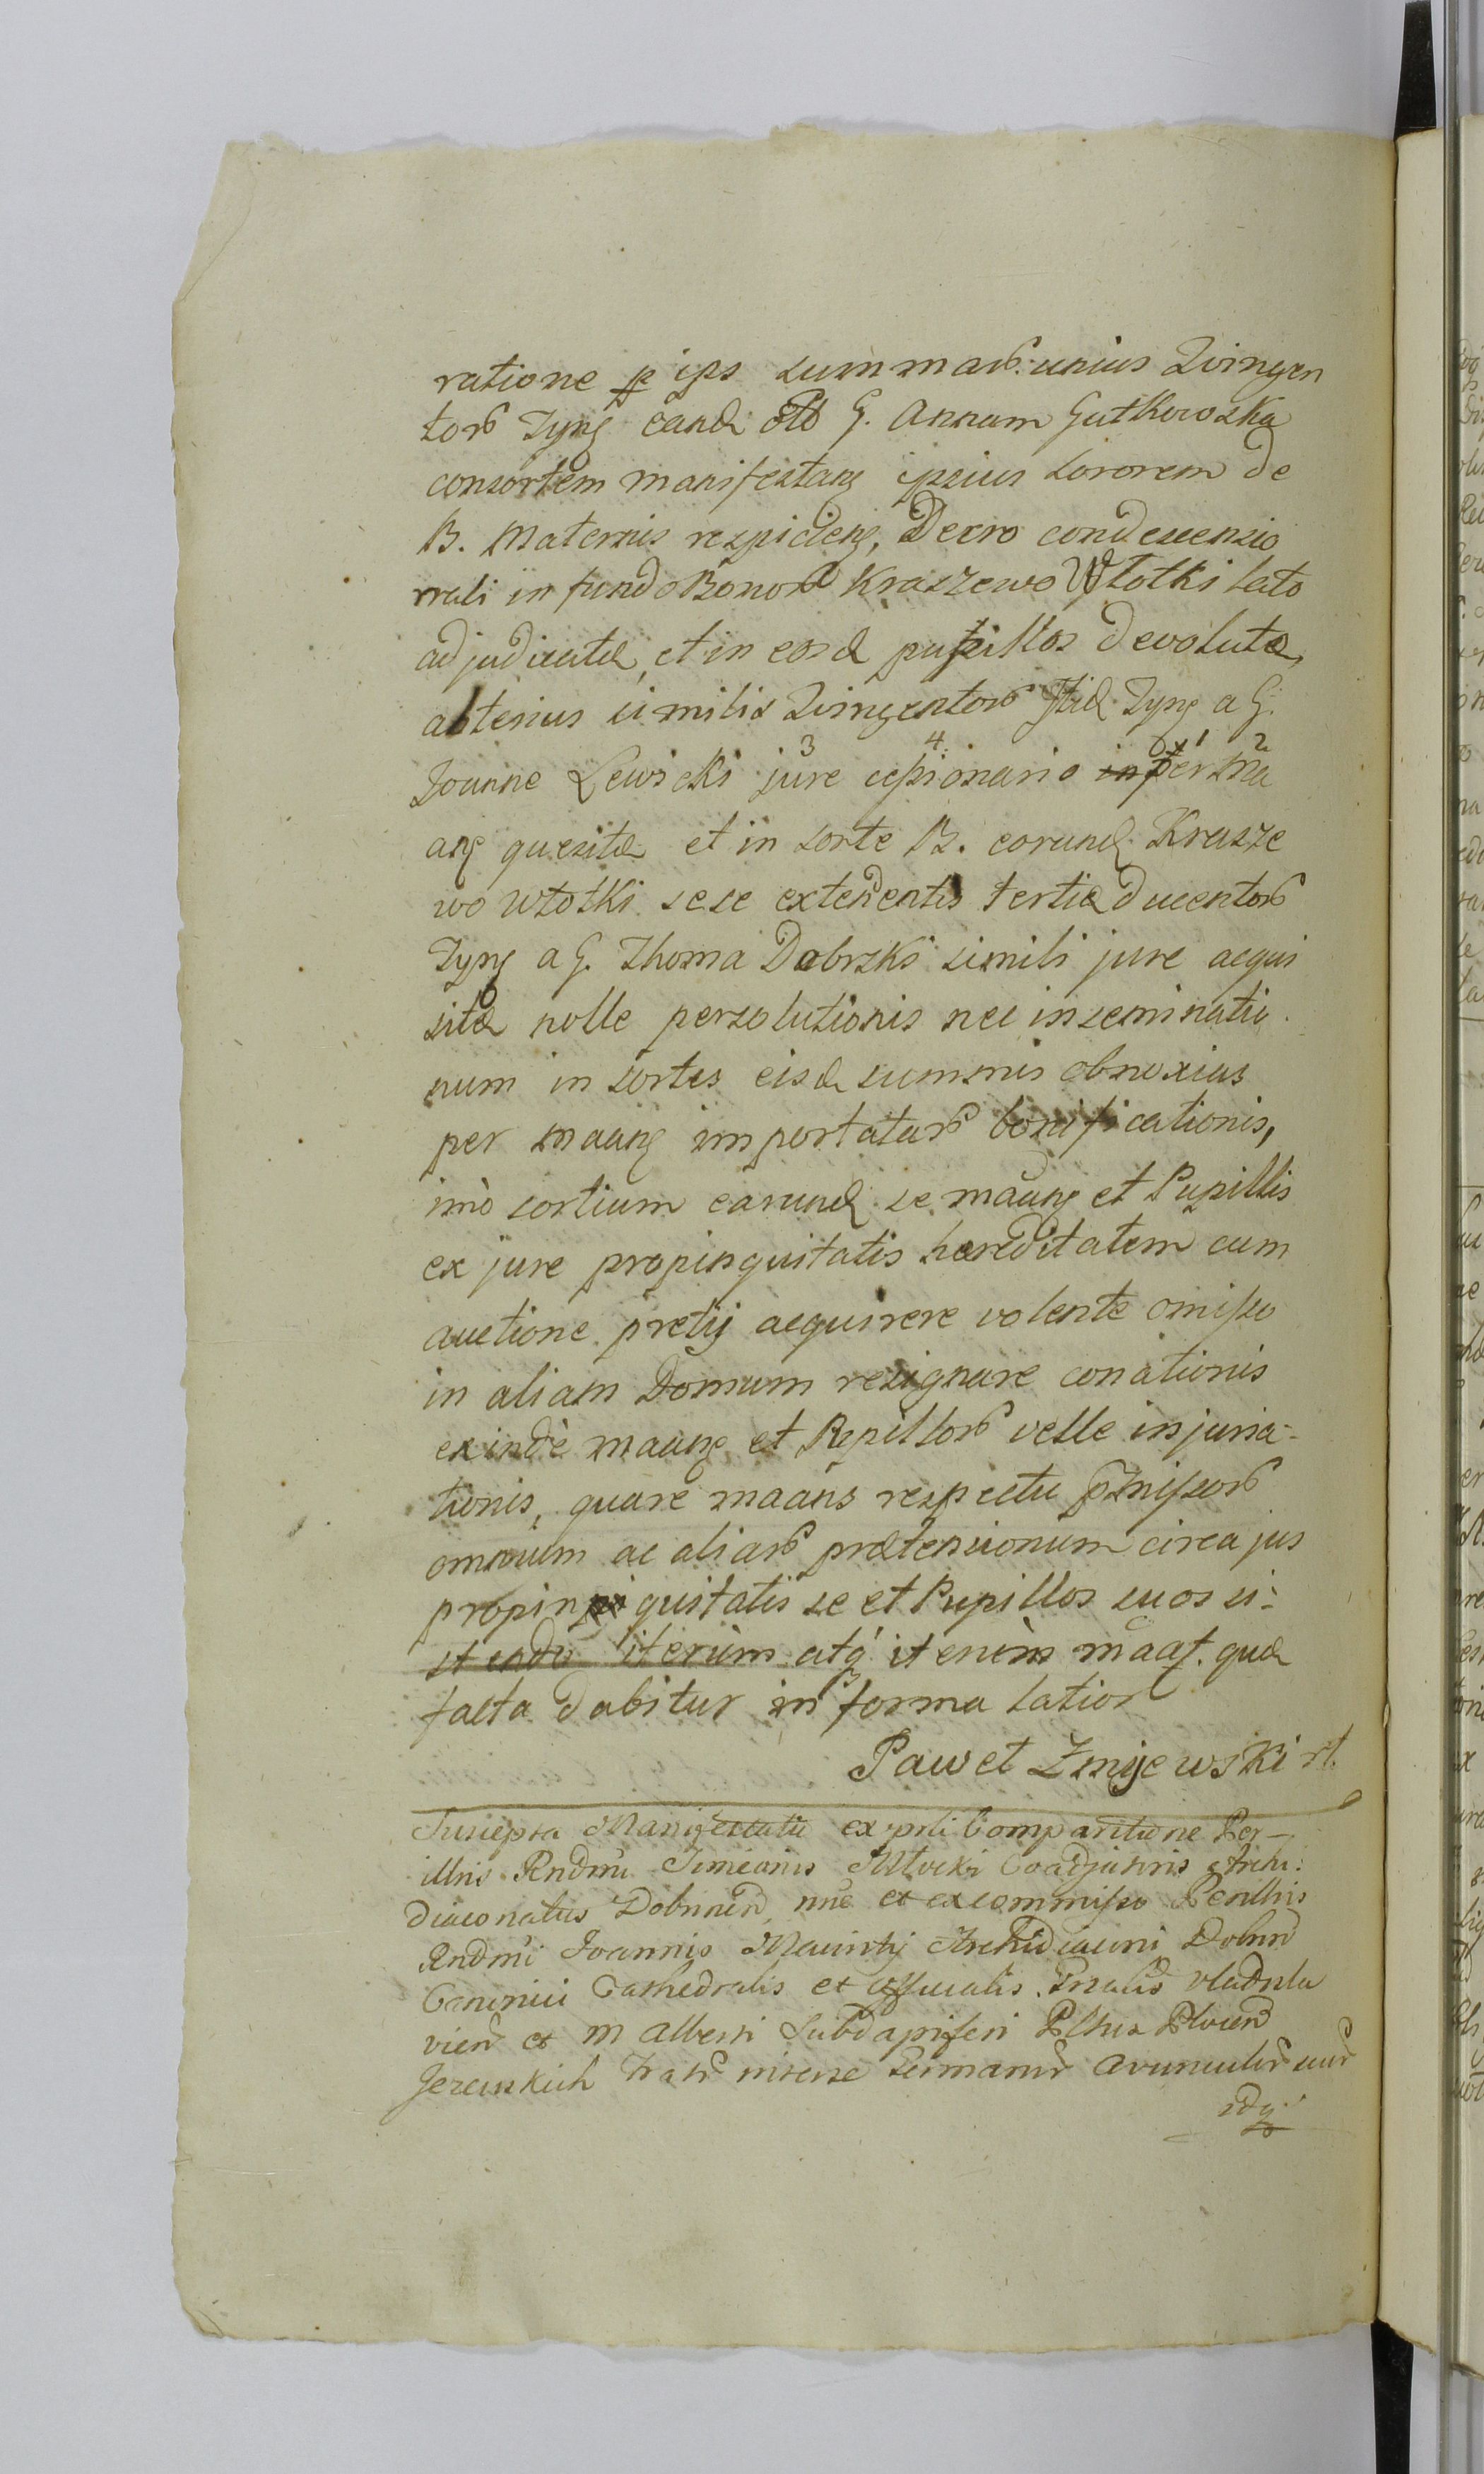 ratione p ips summar unius Quingen
tor Tynf eand olb G. Annam Gutkowska
consortem manifestang ipsius sororem de
B. Maternis respiciens, Decro condescensio
nali in fundo Bonor Kraszewo Włotki lato
adjudicatæ, et in eosd pupillos devolutæ,
alterius similis Quingentor Itid Tynf a G.
Joanne Lewicki jure cessionario in per ma
3 4 1 2
ang quesitæ et in sorte B. eorund Krasze
wo Włotki sese extendentis tertiæ Ducentor
Tynf a G. Thoma Dobrski simili jure acqui
sitæ nolle persolutionis nec inseminatio
num in sortes eisd summis obnoxias
per maang importatar bonificationis,
imò sortium earund se maang et Pupillis
ex jure propinquitatis hæreditatem cum
auctione pretij acquirere volente omisso
in aliam Domum resignare conationis
exindè maang et Pupillor velle injuria-
tionis, quare maans respectu pmissor
omnium ac aliar prætensionum circa jus
propin quitatis se et Pupillos suos si-
stendo iterùm atq iterùm maat. quæ
facta dabitur in forma latior
Paweł Zmijewski rt.
Suscepta Manifestatio ex psli Comparitione Per-
illris Rndmi Simeonis Młocki Coadjutoris Archi:
diaconatus Dobrinen nne et ex commisso Perillris
Rndmi Joannis Mauritij Archidiaconi Dobrin
Canonici Cathedralis et officialis Gnalis Vladisla
vien et m Alberti Subdapiferi Plocen
Jezewskich Fratr interse Germanor Avunculor suor